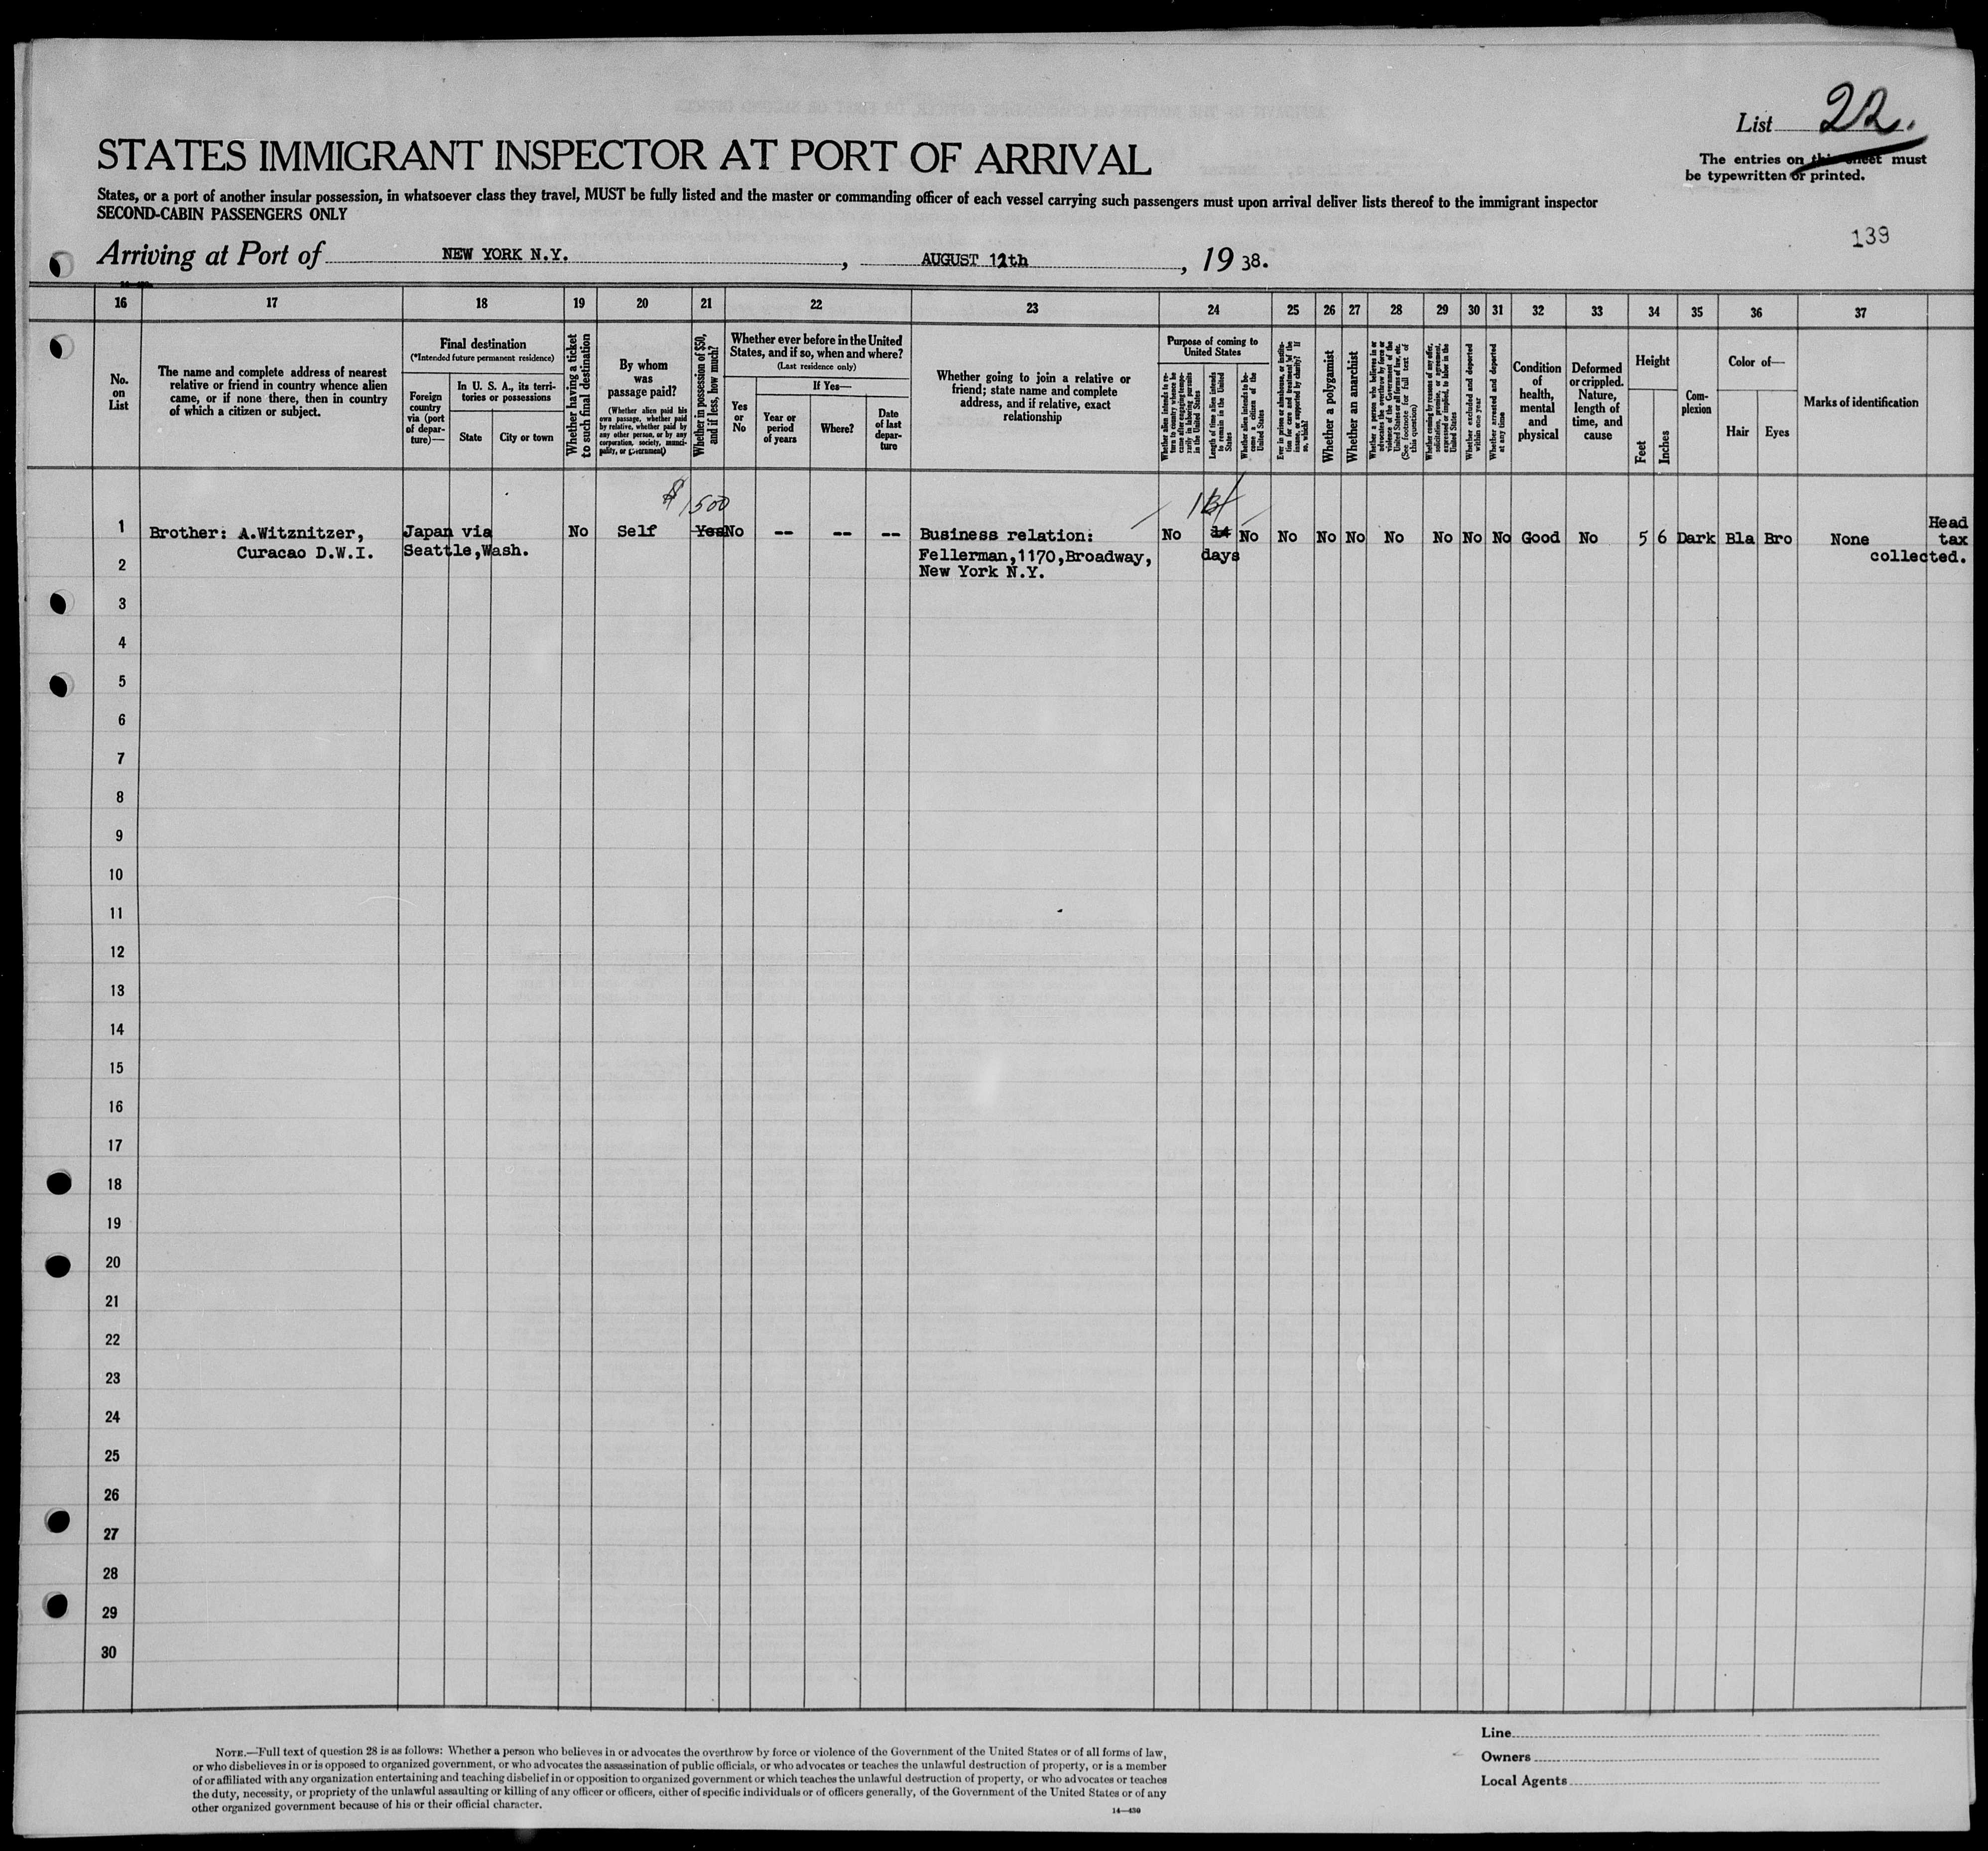 List 22.
The entries on this sheet must
be typewritten or printed.
STATES IMMIGRANT INSPECTOR AT PORT OF ARRIVAL
States, or a port of another insular possession, in whatsoever class they travel, MUST be fully listed and the master or commanding officer of each vessel carrying such passengers must upon arrival deliver lists thereof to the immigrant inspector
SECOND-CABIN PASSENGERS ONLY
139
Arriving at Port of NEW YORK N.Y., AUGUST 12th, 19 38.
16 17 18 19 20 21 22 23 24 25 26 27 28 29 30 31 32 33 34 35 36 37
No.
on
List
The name and complete address of nearest
relative or friend in country whence alien
came, or if none there, then in country
of which a citizen or subject.
Final destination
(*Intended future permanent residence)
Foreign
country
via (port
of depar-
ture)—
In U. S. A., its terri-
tories or possessions
State
City or town
Whether having a ticket
to such final destination
By whom
was
passage paid?
(Whether alien paid his
own passage, whether paid
by relative, whether paid by
any other person, or by any
corporation, society, munici-
pality, or Government)
Whether in possession of $50,
and if less, how much?
Whether ever before in the United
States, and if so, when and where?
(Last residence only)
Yes
or
No
If Yes—
Year or
period
of years
Where?
Date
of last
depar-
ture
Whether going to join a relative or
friend; state name and complete
address, and if relative, exact
relationship
Purpose of coming to
United States
Whether alien intends to re-
turn to country whence he
came after engaging tempo-
rarily in laboring pursuits
in the United States
Length of time alien intends
to remain in the United
States
Whether alien intends to be-
come a citizen of the
United States
Ever in prison or almshouse, or institu-
tion for care and treatment of the
insane, or supported by charity? If
so, which?
Whether a polygamist
Whether an anarchist
Whether a person who believes in or
advocates the overthrow by force or
violence of the Government of the
United States or all forms of law, etc.
(See footnote for full text of
this question)
Whether coming by reason of any offer,
solicitation, promise, or agreement,
expressed or implied, to labor in the
United States
Whether excluded and deported
within one year
Whether arrested and deported
at any time
Condition
of
health,
mental
and
physical
Deformed
or crippled.
Nature,
length of
time, and
cause
Height
Feet
Inches
Com-
plexion
Color of—
Hair
Eyes
Marks of identification
$1500
1 Brother: A.Witznitzer, Japan via No Self Yes No -- -- -- Business relation: No 14 No No No No No No No No Good No 5 6 Dark Bla Bro None Head
tax
Curacao D.W.I. Seattle,Wash. Fellerman,1170,Broadway, days collected.
2 New York N.Y.
3
4
5
6
7
8
9
10
11
12
13
14
15
16
17
18
19
20
21
22
23
24
25
26
27
28
29
30
NOTE.—Full text of question 28 is as follows: Whether a person who believes in or advocates the overthrow by force or violence of the Government of the United States or of all forms of law,
or who disbelieves in or is opposed to organized government, or who advocates the assassination of public officials, or who advocates or teaches the unlawful destruction of property, or is a member
of or affiliated with any organization entertaining and teaching disbelief in or opposition to organized government or which teaches the unlawful destruction of property, or who advocates or teaches
the duty, necessity, or propriety of the unlawful assaulting or killing of any officer or officers, either of specific individuals or of officers generally, of the Government of the United States or of any
other organized government because of his or their official character.
14—430
Line
Owners
Local Agents